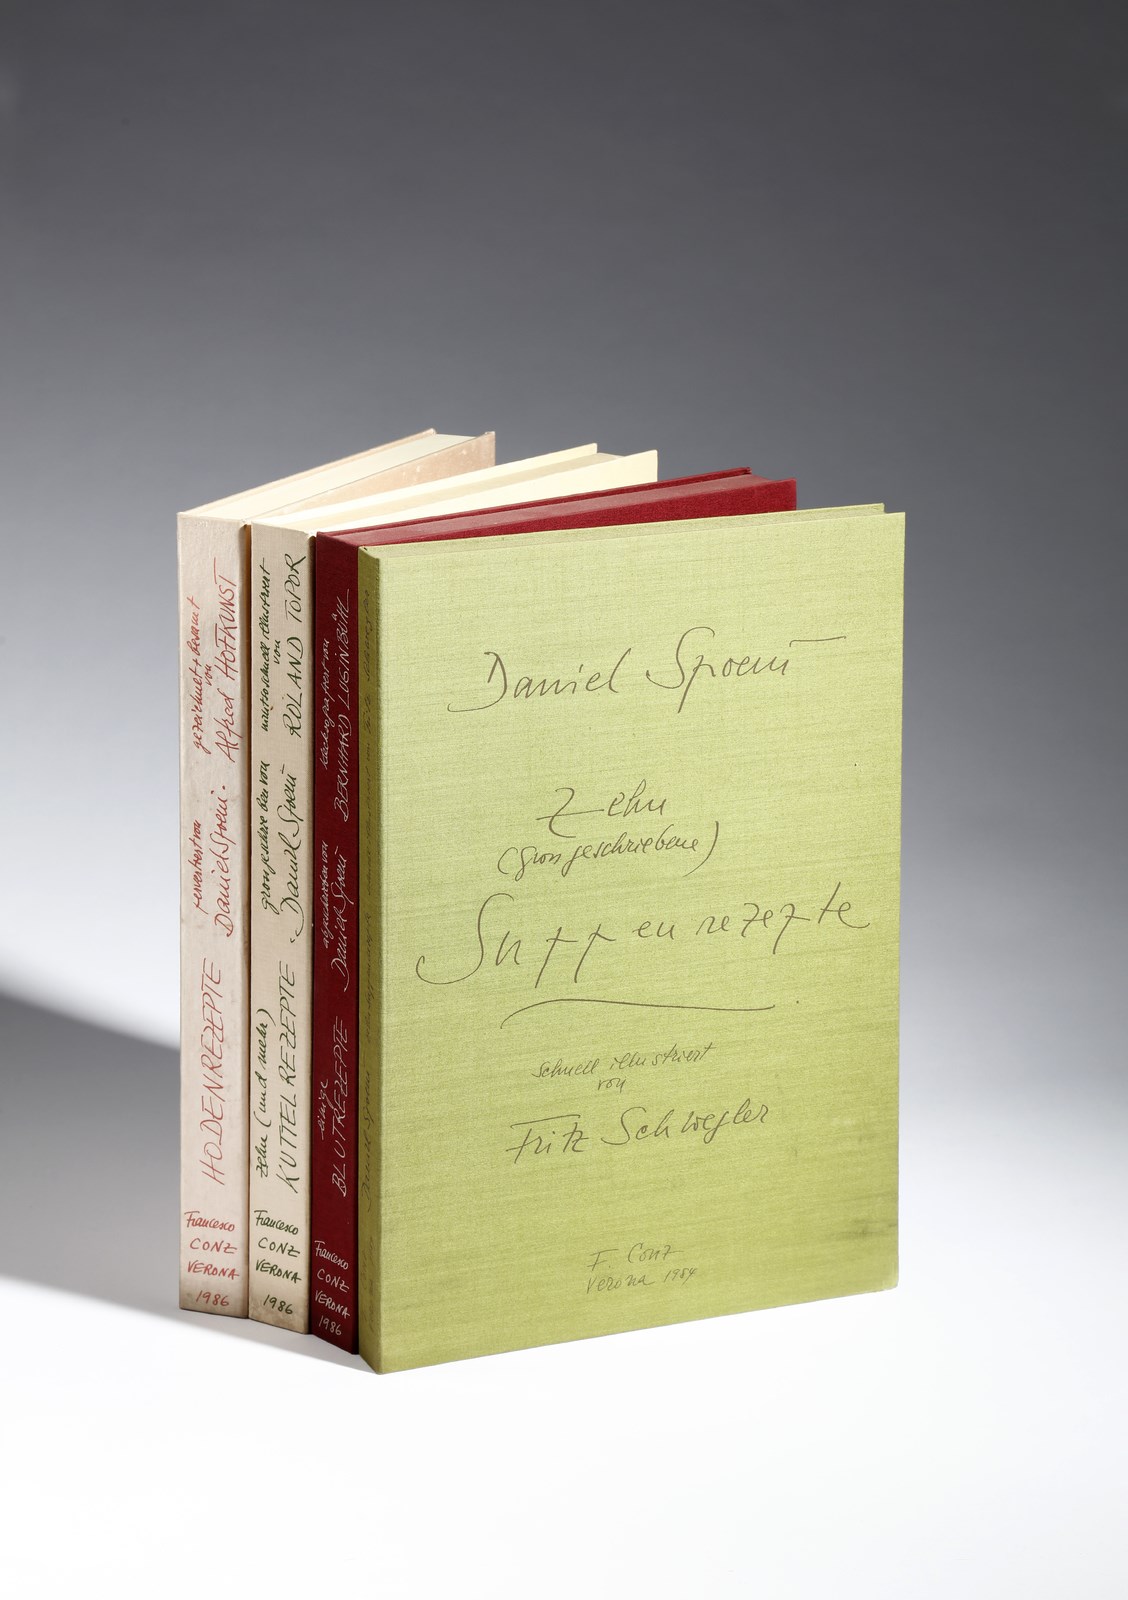 HODENREZEPTE
Daniel Spoerri.
gezeichnet + bemamt
von
Alfred HOFKUNST
Francesco
CONZ
VERONA
1986
zehn (und mehr)
KUTTELREZEPTE
Daniel Spoerri
von
ROLAND TOPOR
Francesco
CONZ
VERONA
1986
einige
BLUTREZEPTE
abgeschrieben von
Daniel Spoerri
BERNHARD LUGINBÜHL
Francesco
CONZ
VERONA
1986
Daniel Spoerri
Daniel Spoerri
Zehn
(grossgeschriebene)
Suppenrezepte
schnell illustriert
von
Fritz Schwegler
F. Conz
Verona 1984